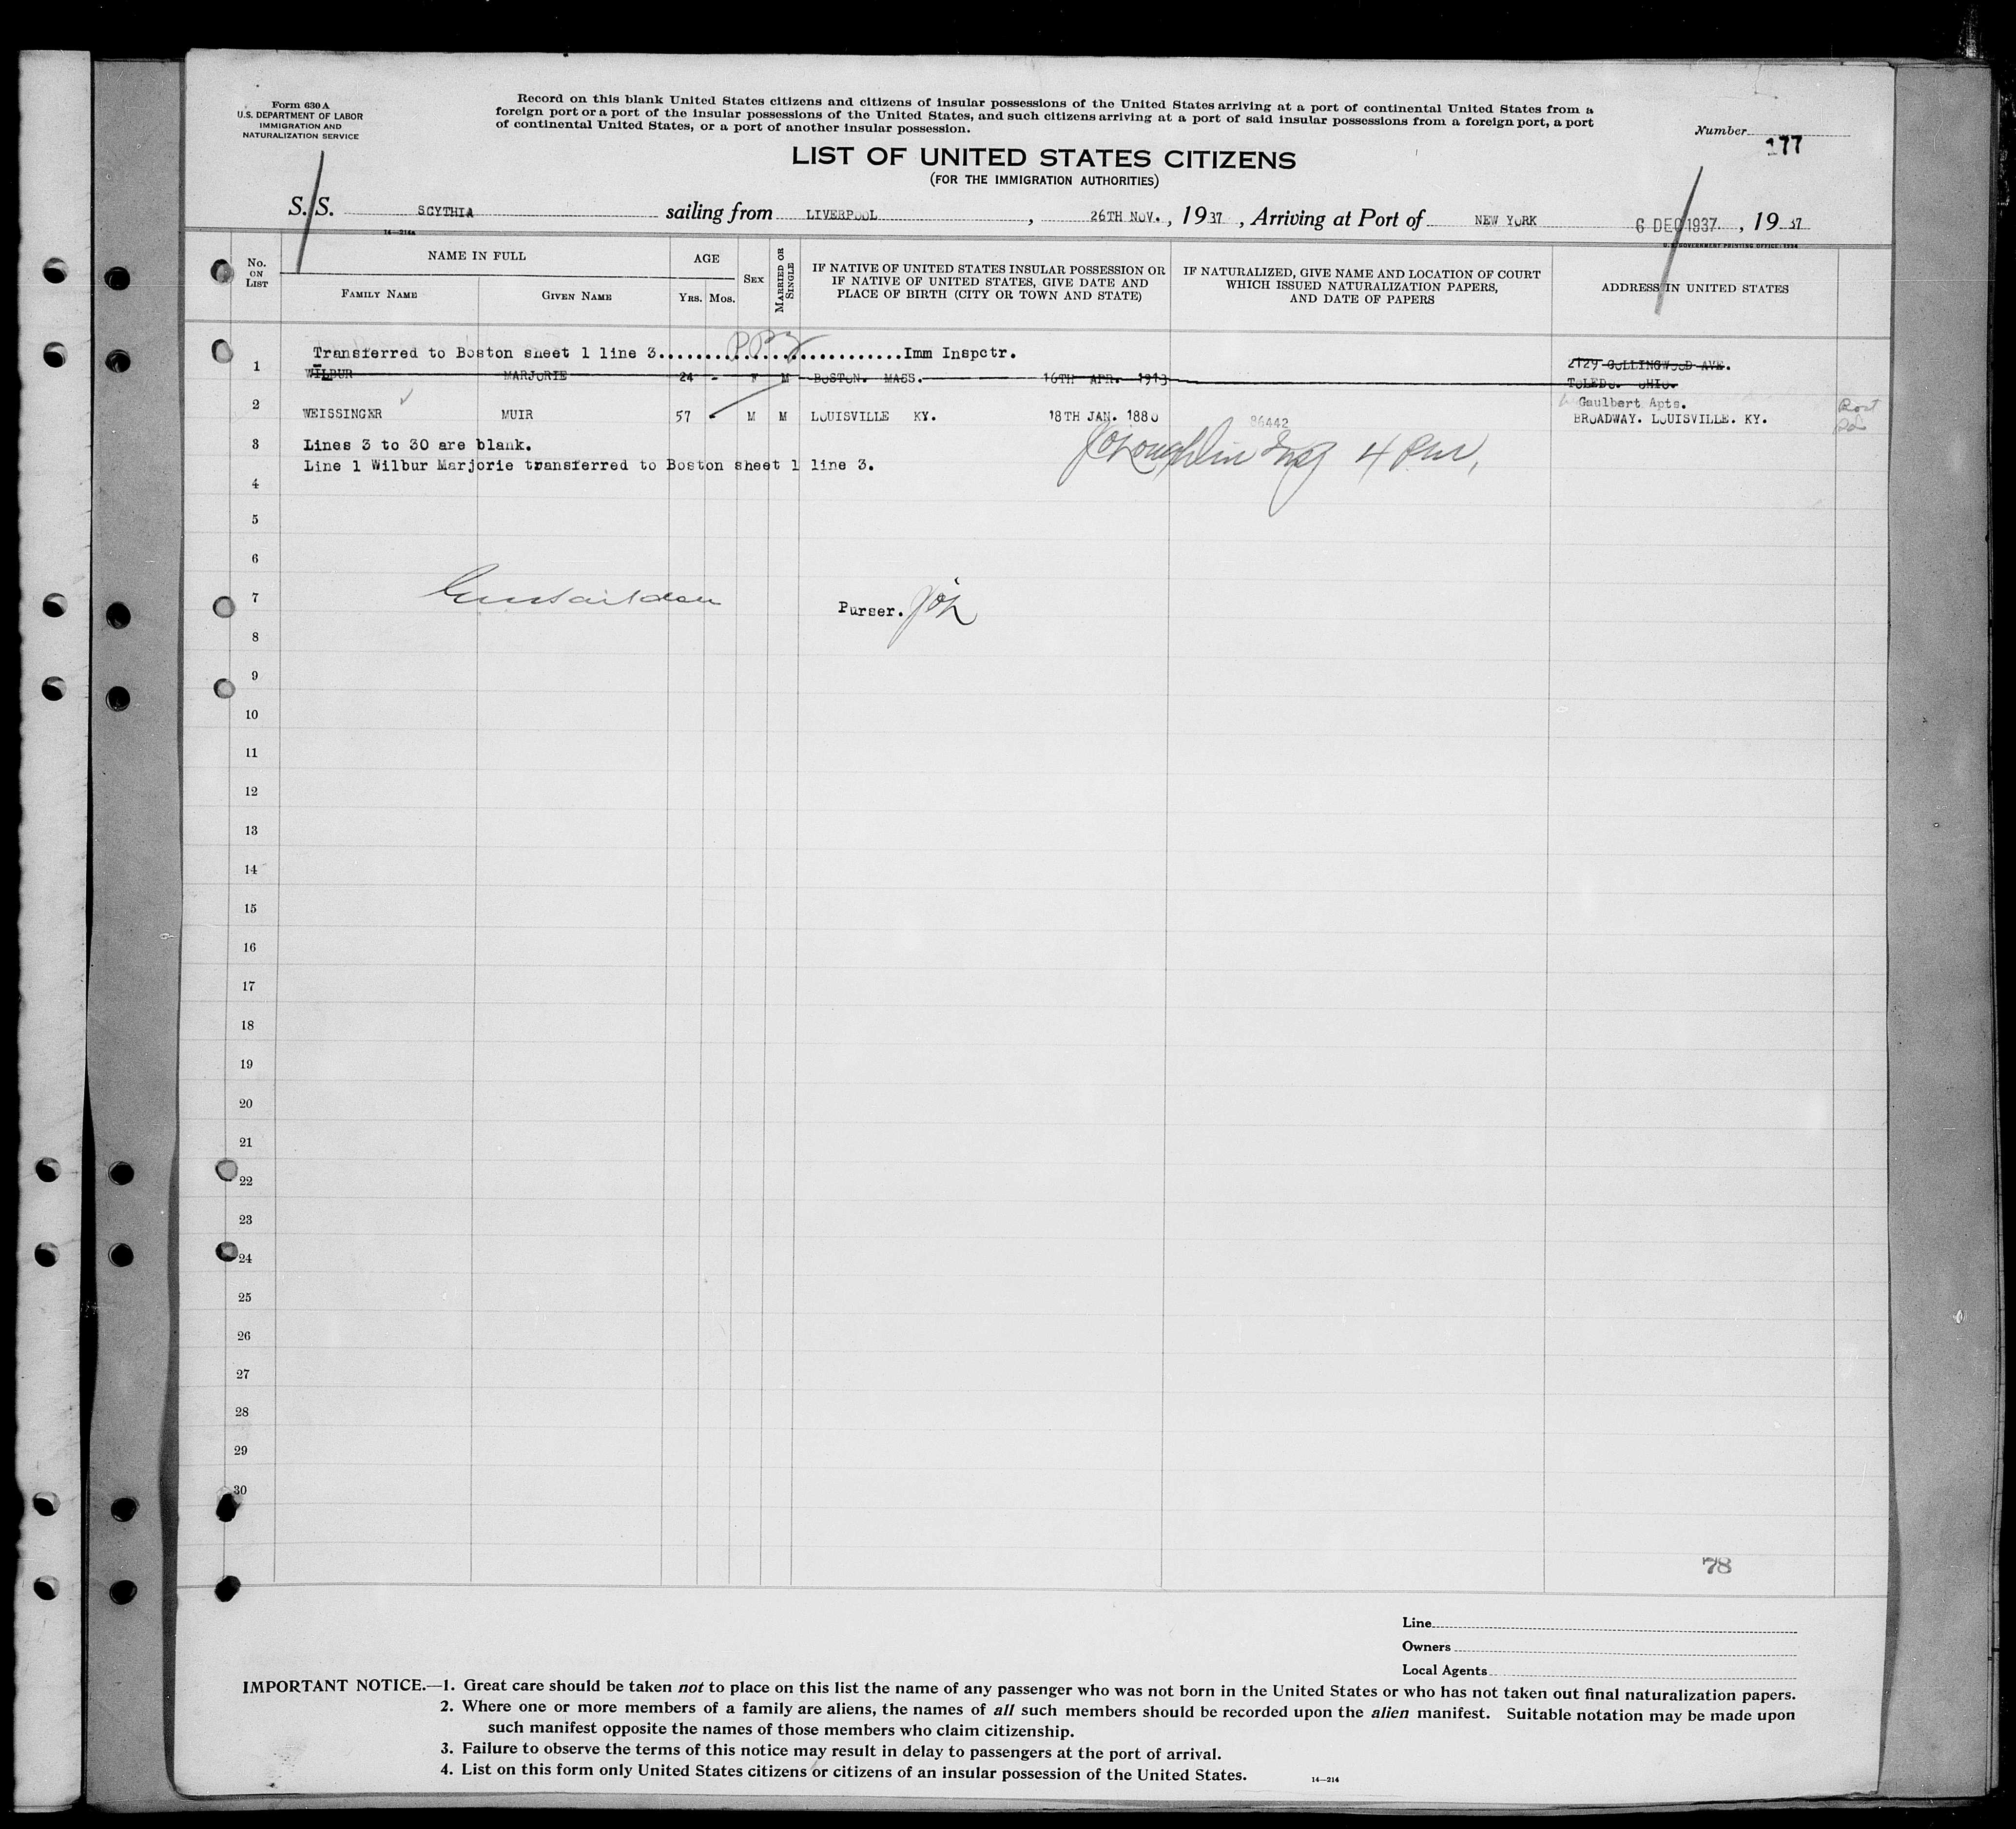 Form 630 A
U.S. DEPARTMENT OF LABOR
IMMIGRATION AND
NATURALIZATION SERVICE
Record on this blank United States citizens and citizens of insular possessions of the United States arriving at a port of continental United States from a
foreign port or a port of the insular possessions of the United States, and such citizens arriving at a port of said insular possessions from a foreign port, a port
of continental United States, or a port of another insular possession.
Number
177
LIST OF UNITED STATES CITIZENS
(FOR THE IMMIGRATION AUTHORITIES)
S. S. SCYTHIA sailing from LIVERPOOL, 26TH NOV., 1937, Arriving at Port of NEW YORK 6 DEC 1937, 1937
14—214a
U.S. GOVERNMENT PRINTING OFFICE: 1934
No. ON LIST
NAME IN FULL
FAMILY NAME
GIVEN NAME
AGE
YRS. MOS.
SEX
MARRIED OR SINGLE
IF NATIVE OF UNITED STATES INSULAR POSSESSION OR
IF NATIVE OF UNITED STATES, GIVE DATE AND
PLACE OF BIRTH (CITY OR TOWN AND STATE)
IF NATURALIZED, GIVE NAME AND LOCATION OF COURT
WHICH ISSUED NATURALIZATION PAPERS,
AND DATE OF PAPERS
ADDRESS IN UNITED STATES
Transferred to Boston sheet 1 line 3..............................Imm Inspctr.
1 WILBUR MARJORIE 24 - F M BOSTON. MASS. 16TH APR. 1913 2129 COLLINGWOOD AVE.
TOLEDO. OHIO.
Gaulbert Apts.
2 WEISSINGER MUIR 57 - M M LOUISVILLE KY. 18TH JAN. 1880 86442 BROADWAY. LOUISVILLE. KY.
3 Lines 3 to 30 are blank.
Line 1 Wilbur Marjorie transferred to Boston sheet 1 line 3.
4
5
6
7 Purser.
8
9
10
11
12
13
14
15
16
17
18
19
20
21
22
23
24
25
26
27
28
29
30
78
Line
Owners
Local Agents
IMPORTANT NOTICE.—1. Great care should be taken not to place on this list the name of any passenger who was not born in the United States or who has not taken out final naturalization papers.
2. Where one or more members of a family are aliens, the names of all such members should be recorded upon the alien manifest. Suitable notation may be made upon
such manifest opposite the names of those members who claim citizenship.
3. Failure to observe the terms of this notice may result in delay to passengers at the port of arrival.
4. List on this form only United States citizens or citizens of an insular possession of the United States.
14—214